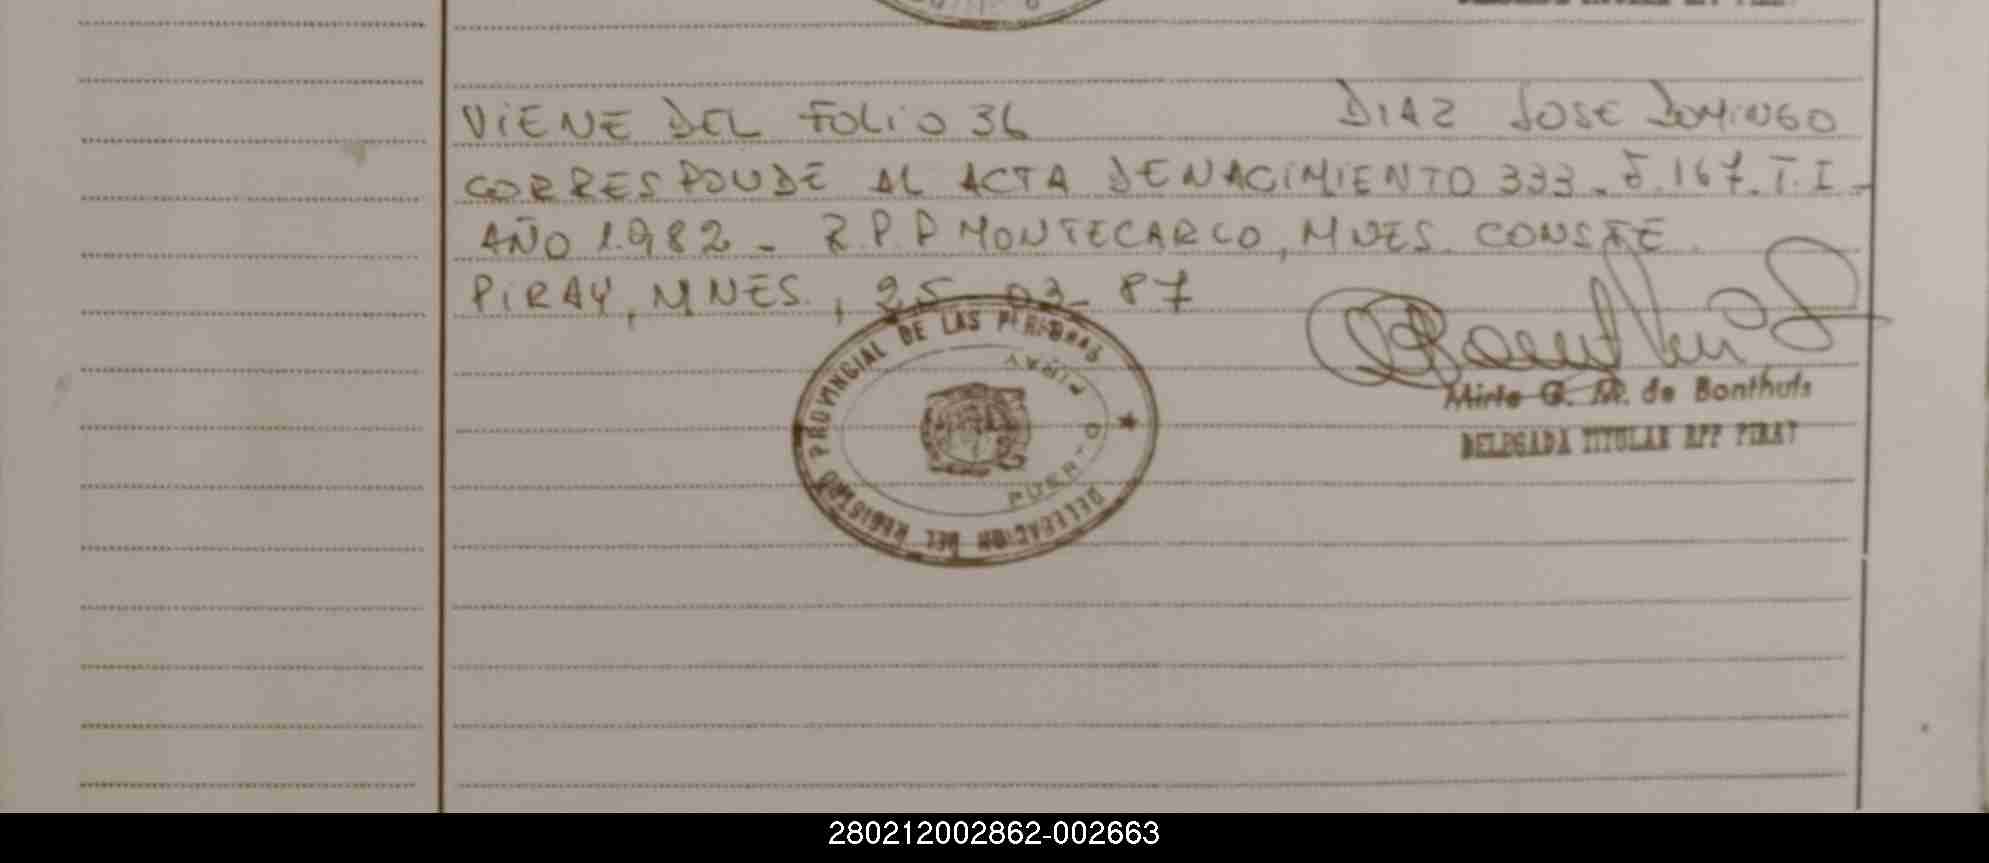 VIENE DEL FOLIO 36 DIAZ JOSE DOMINGO
CORRESPONDE AL ACTA DE NACIMIENTO 333_ F.167_T.I_
AÑO 1.982_ R.P.P MONTECARLO, MNES. CONSTE.
PIRAY, MNES., 25_03_87
DELEGACION DEL REGISTRO PROVINCIAL DE LAS PERSONAS
PUERTO PIRAY
Mirta G. M. de Bonthuis
DELEGADA TITULAR RPP PIRAY
280212002862-002663